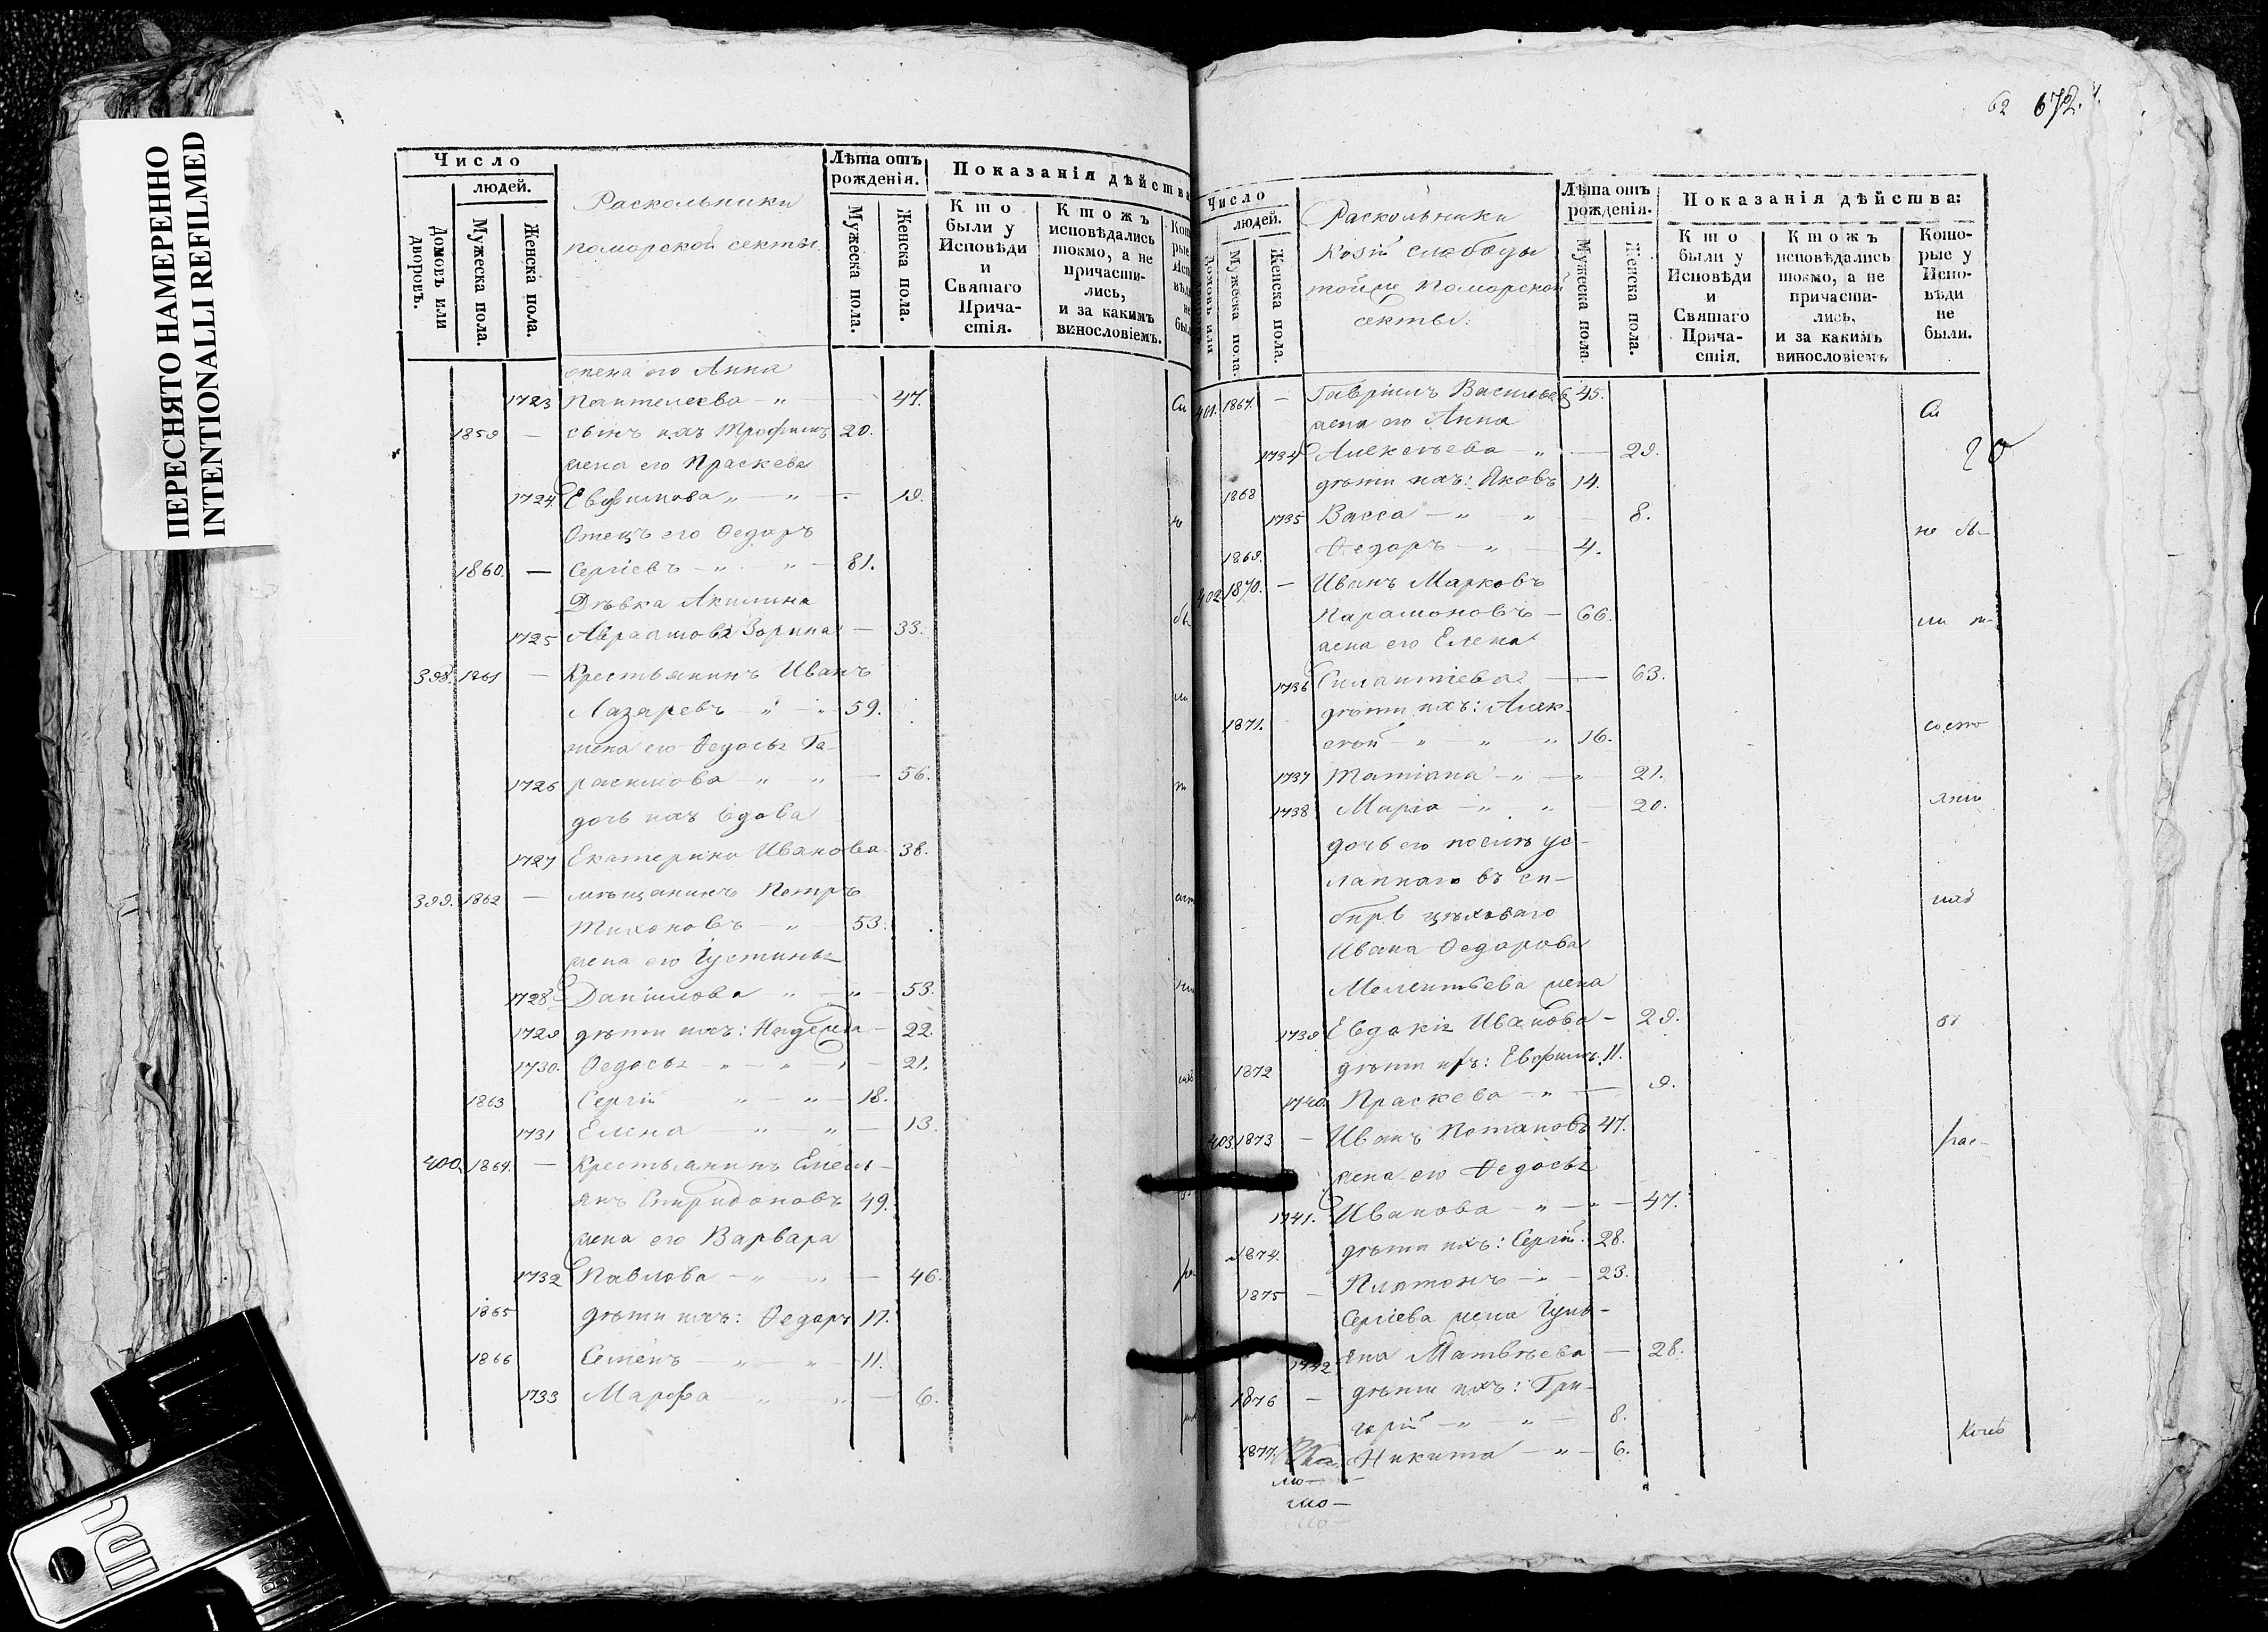 ПЕРЕСНЯТО НАМЕРЕННО
INTENTIONALLI REFILMED
Число
людей.
Домовъ или дворовъ.
Мужеска пола.
Женска пола.
Раскольники
поморской секты.
Лѣта отъ
рожденія.
Мужеска пола.
Женска пола.
Показанія дѣйства
Кто
были у
Исповѣди
и
Святаго
Прича-
стія.
Ктожъ
исповѣдались
токмо, а не
причасти-
лись,
и за какимъ
винословіемъ.
жена его Анна
1723 Пантелеева - „ 47.
1859 — сынъ ихъ Трофимъ 20.
жена его Праскева
1724 Евфимова „ — „ — 19.
Отецъ его Ѳедоръ
1860. — Сергіевъ - „ - „ - 81.
Дѣвка Акилина
1725 Авраамова Зорина — 33.
398. 1861 — Крестьянинъ Иванъ
Лазаревъ - „ - „ 59.
жена его Ѳедосья Га-
1726 расимова - „ - „ — 56.
дочь ихъ вдова
1727 Екатерина Иванова 38.
399. 1862 — мѣщанинъ Петръ
Тихоновъ - „ - 53.
жена его Іустинья
1728 Даніилова - „ - „ - 53.
1729 дѣти ихъ: Надежда - 22.
1730. Ѳедосья - „ - „ - 21.
1863 Сергій - „ - „ - 18.
1731 Елена - „ - „ - 13.
400. 1864. — Крестьянинъ Емель-
янъ Спиридоновъ 49.
жена его Варвара
1732 Павлова - „ - „ — 46.
1865 дѣти ихъ: Ѳедоръ 17.
1866 Семенъ - „ - „ 11.
1733 Марѳа - „ - „ — 6.
62 672.
Число
людей.
Мужеска пола.
Женска пола.
Раскольники
Козій слободы
тойже поморской
секты.
Лѣта отъ
рожденія.
Мужеска пола.
Женска пола.
Показанія дѣйства:
Кто
были у
Исповѣди
и
Святаго
Прича-
стія.
Ктожъ
исповѣдались
токмо, а не
причасти-
лись,
и за какимъ
винословіемъ
Кото-
рые у
Испо-
вѣди
не
были.
401. 1867. — Гавріилъ Васильевъ 45.
Си
жена его Анна
1734 Алексѣева - „ — 29.
1868 дѣти ихъ: Яковъ 14.
1735 Васса - „ - „ — 8.
не бы-
1869. Ѳедоръ - „ - 4.
402 1870. — Иванъ Марковъ
Парамоновъ - 66.
ли по
жена его Елена
1736 Силантіева — 63.
1871. дѣти ихъ: Алек-
состо
сѣй - „ - „ - „ 16.
1737 Татіана - „ - „ 21.
1738 Марія - „ - „ — 20.
янію
дочь его послѣ со-
сланнаго въ си-
бирь цѣховаго
Ивана Ѳедорова
Мелентьева жена
1739 Евдакія Иванова - 29.
въ
1872 дѣти ихъ: Евфимъ 11.
1740 Праскева - „ — 9.
403 1873 — Иванъ Потаповъ 47.
рас-
жена его Ѳедосья
1741. Иванова - „ - „ - 47.
1874. дѣти ихъ: Сергій 28.
1875 — Платонъ - „ - 23.
Сергіева жена Іулі-
1742 яна Матвѣева — 28.
1876 — дѣти ихъ: Гри-
горій - „ - „ - 8.
коль
1877 Никита - „ - 6.